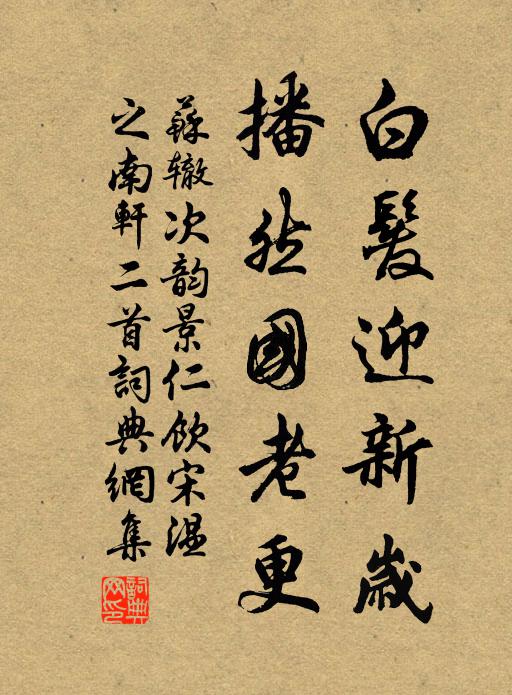 白髮迎新歲
播然國老更
蘇辙次韵景仁飲宋温
之南軒二首詞典網集
詞典
网印